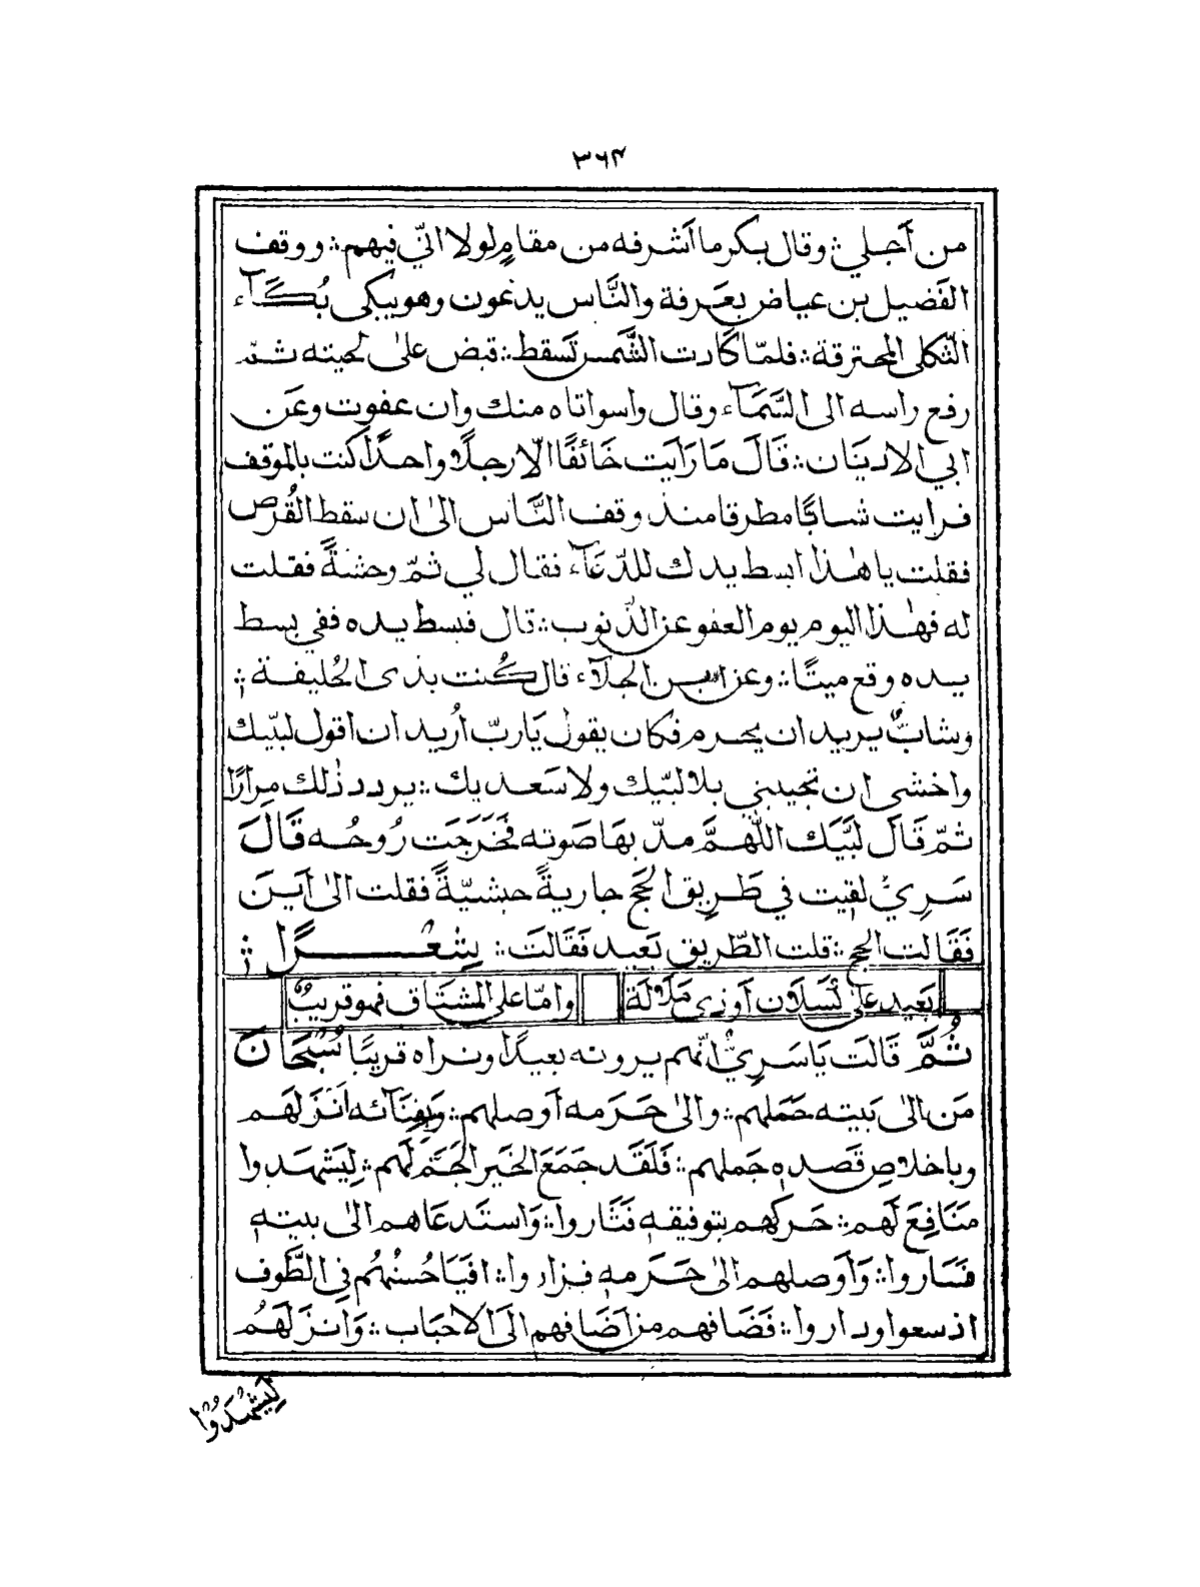 ٣٦٤
من أجلي ؞ وقال بكر ما أشرفه من مقامٍ لولا انيّ فيهم ؞ ووقف
الفَضيل بن عياض بعَرفة والنَّاس يدعون وهو يبكى بُكَآء
الثكلى المحترقة ؞ فلمّا كادت الشَّمس تَسقط ؞ قبض علىٰ لحيته ثمّ
رفع راسه الى السَّمَآء وقال واسواتاه منك وان عفوت وعَن
ابي الاديَان ؞ قَالَ مَا رَايَت خَائفًا الّا رجلًا واحدًا كنت بالموقف
فرايت شابًا مطرقا منذ وقف النَّاس الىٰ ان سقط القُرص
فقلت يا هٰذا ابسط يدك للدّعَآء فقال لي ثمّ وحشةً فقلت
له فهٰذا اليوم يوم العفو عن الذّنوب ؞ قال فبسط يده ففي بسط
يده وقع ميتًا ؞ وعن ابن الجلآء قال كُنت بذى الحُليفة ؞
وشابٌّ يريد ان يحرم فكان يقول يَا ربّ اُريد ان اقول لبّيك
واخشى ان تجيبني بلا لبّيك ولا سَعديك ؞ يردد ذٰلك مِرارًا
ثمّ قَالَ لبَّيَك اللّٰهمَّ مدّ بهَا صَوته فَخَرَجَت رُوحُه قَالَ
سَرِيٌّ لقيت في طَرِيق الحَج جاريةً حبشيّةً فقلت الىٰ اَيَنَ
فَقَالت الحج ؞ قلت الطّريق بَعيد فَقَالتَ ؞ شِعْرًا ؞
بَعيد علىٰ كَسلَان اَو ذى مَلَالَة وامّا على المشتَاق فهو قريبٌ
ثُمَّ قَالَت يَا سَرِيُّ انّهم يرونه بعيدًا ونراه قريبًا سُبْحَانَ
مَن الىٰ بَيته حَمَلهم ؞ والىٰ حَرَمه اَوصلهم ؞ وَبِفِنَآئه اَنزَلَهم
وباخلاصِ قَصده جَملهم ؞ فَلَقَد جَمَعَ الخَير الجَمَّ لَهم ؞ لِيَشهَدوا
مَنَافِعَ لَهم ؞ حَركهم بتوفيقه فَثَاروا ؞ وَاستَدعَاهم الىٰ بيته
فسَاروا ؞ وَاَوصلهم الىٰ حَرَمه فزاروا ؞ افيَا حُسنُهُم في الطَّوف
اذ سعوا وداروا ؞ فَضَافهم من اَضَافهم الىَ الاحبَاب ؞ وَانزَلَهُم
لِيَشْهَدُوْا